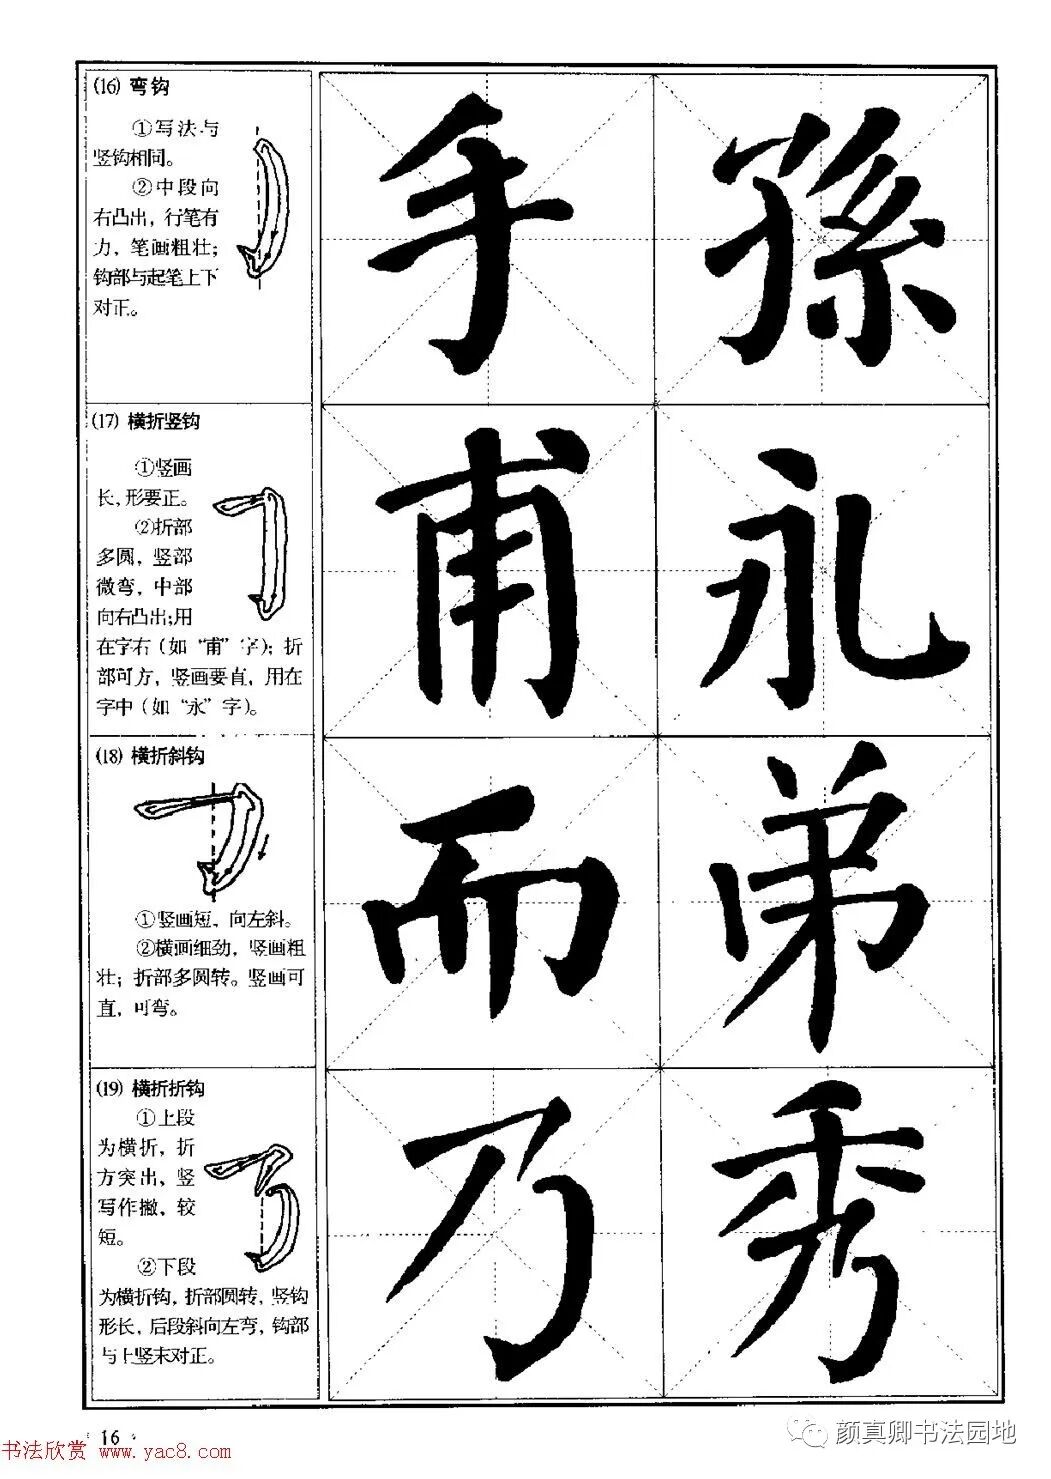 (16) 弯钩
①写法与
竖钩相同。
②中段向
右凸出，行笔有
力，笔画粗壮；
钩部与起笔上下
对正。
手 孫
(17) 横折竖钩
①竖画
长，形要正。
②折部
多圆，竖部
微弯，中部
向右凸出；用
在字右（如“甫”字）；折
部可方，竖画要直，用在
字中（如“永”字）。
甫 永
(18) 横折斜钩
①竖画短，向左斜。
②横画细劲，竖画粗
壮；折部多圆转。竖画可
直，可弯。
而 弟
(19) 横折折钩
①上段
为横折，折
方突出，竖
写作撇，较
短。
②下段
为横折钩，折部圆转，竖钩
形长，后段斜向左弯，钩部
与上竖末对正。
乃 秀
16
书法欣赏 www.yac8.com
颜真卿书法园地